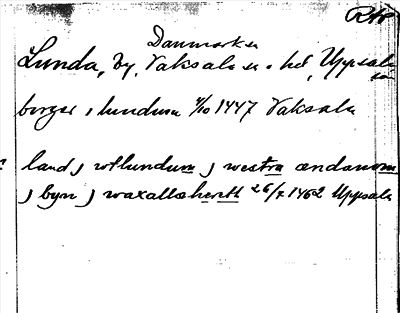 RAp
Danmarks sn
Lunda, by, Vaksala sn o. hd, Uppsala
län
birger i lundum 4/10 1447 Vaksala
land j wtlundum j westra ændanom
j byn j waxallahæreth 26/7 1462 Uppsala